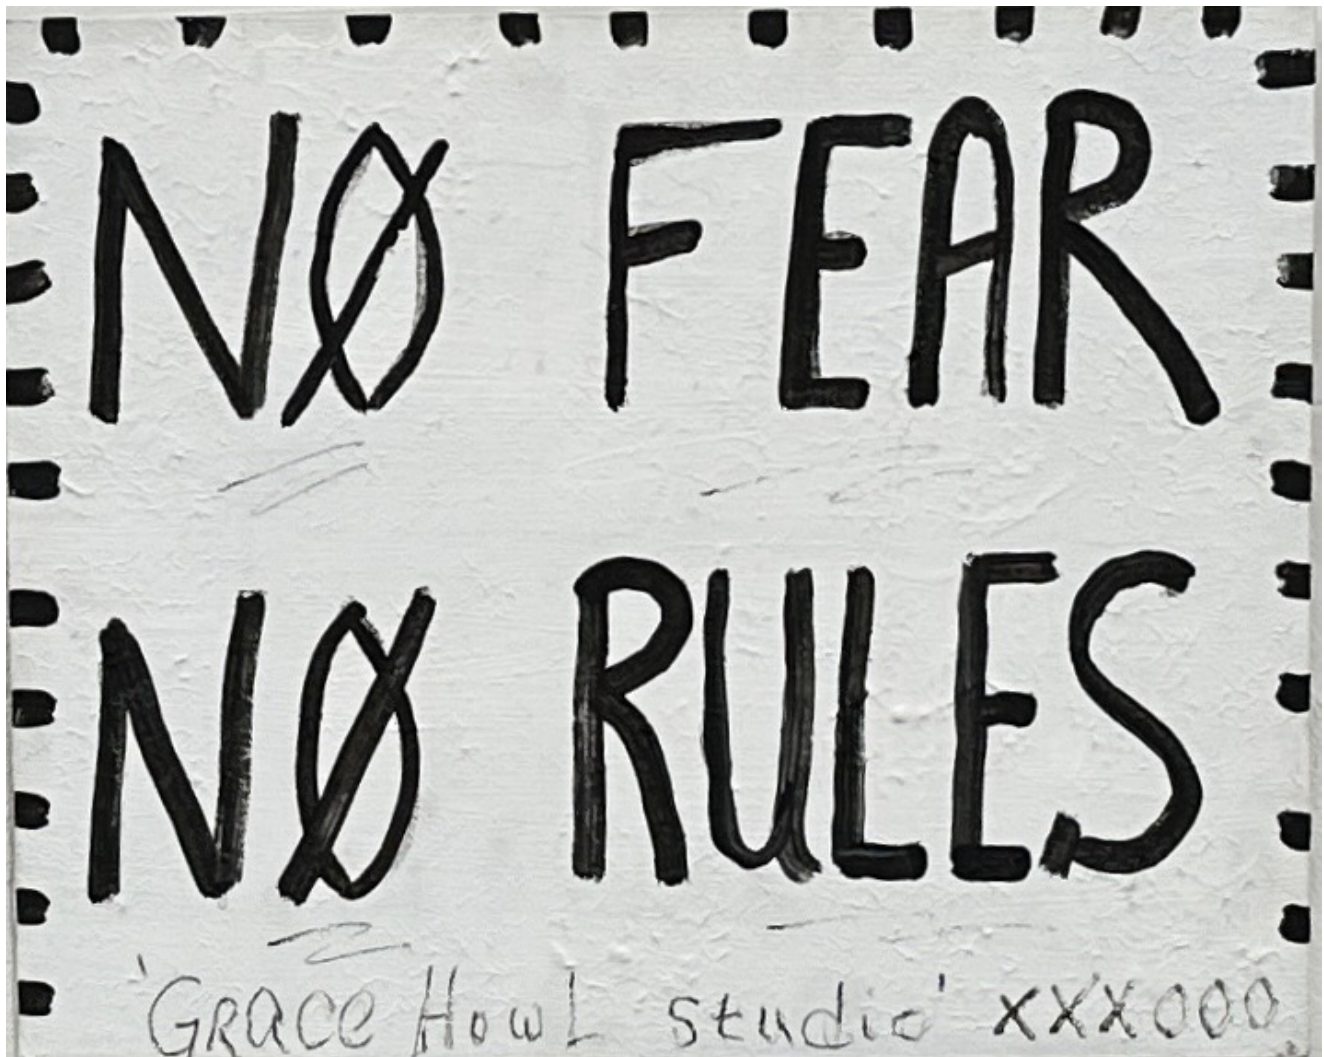 NØ FEAR
NØ RULES
'GRACE HowL studio' xxxooo